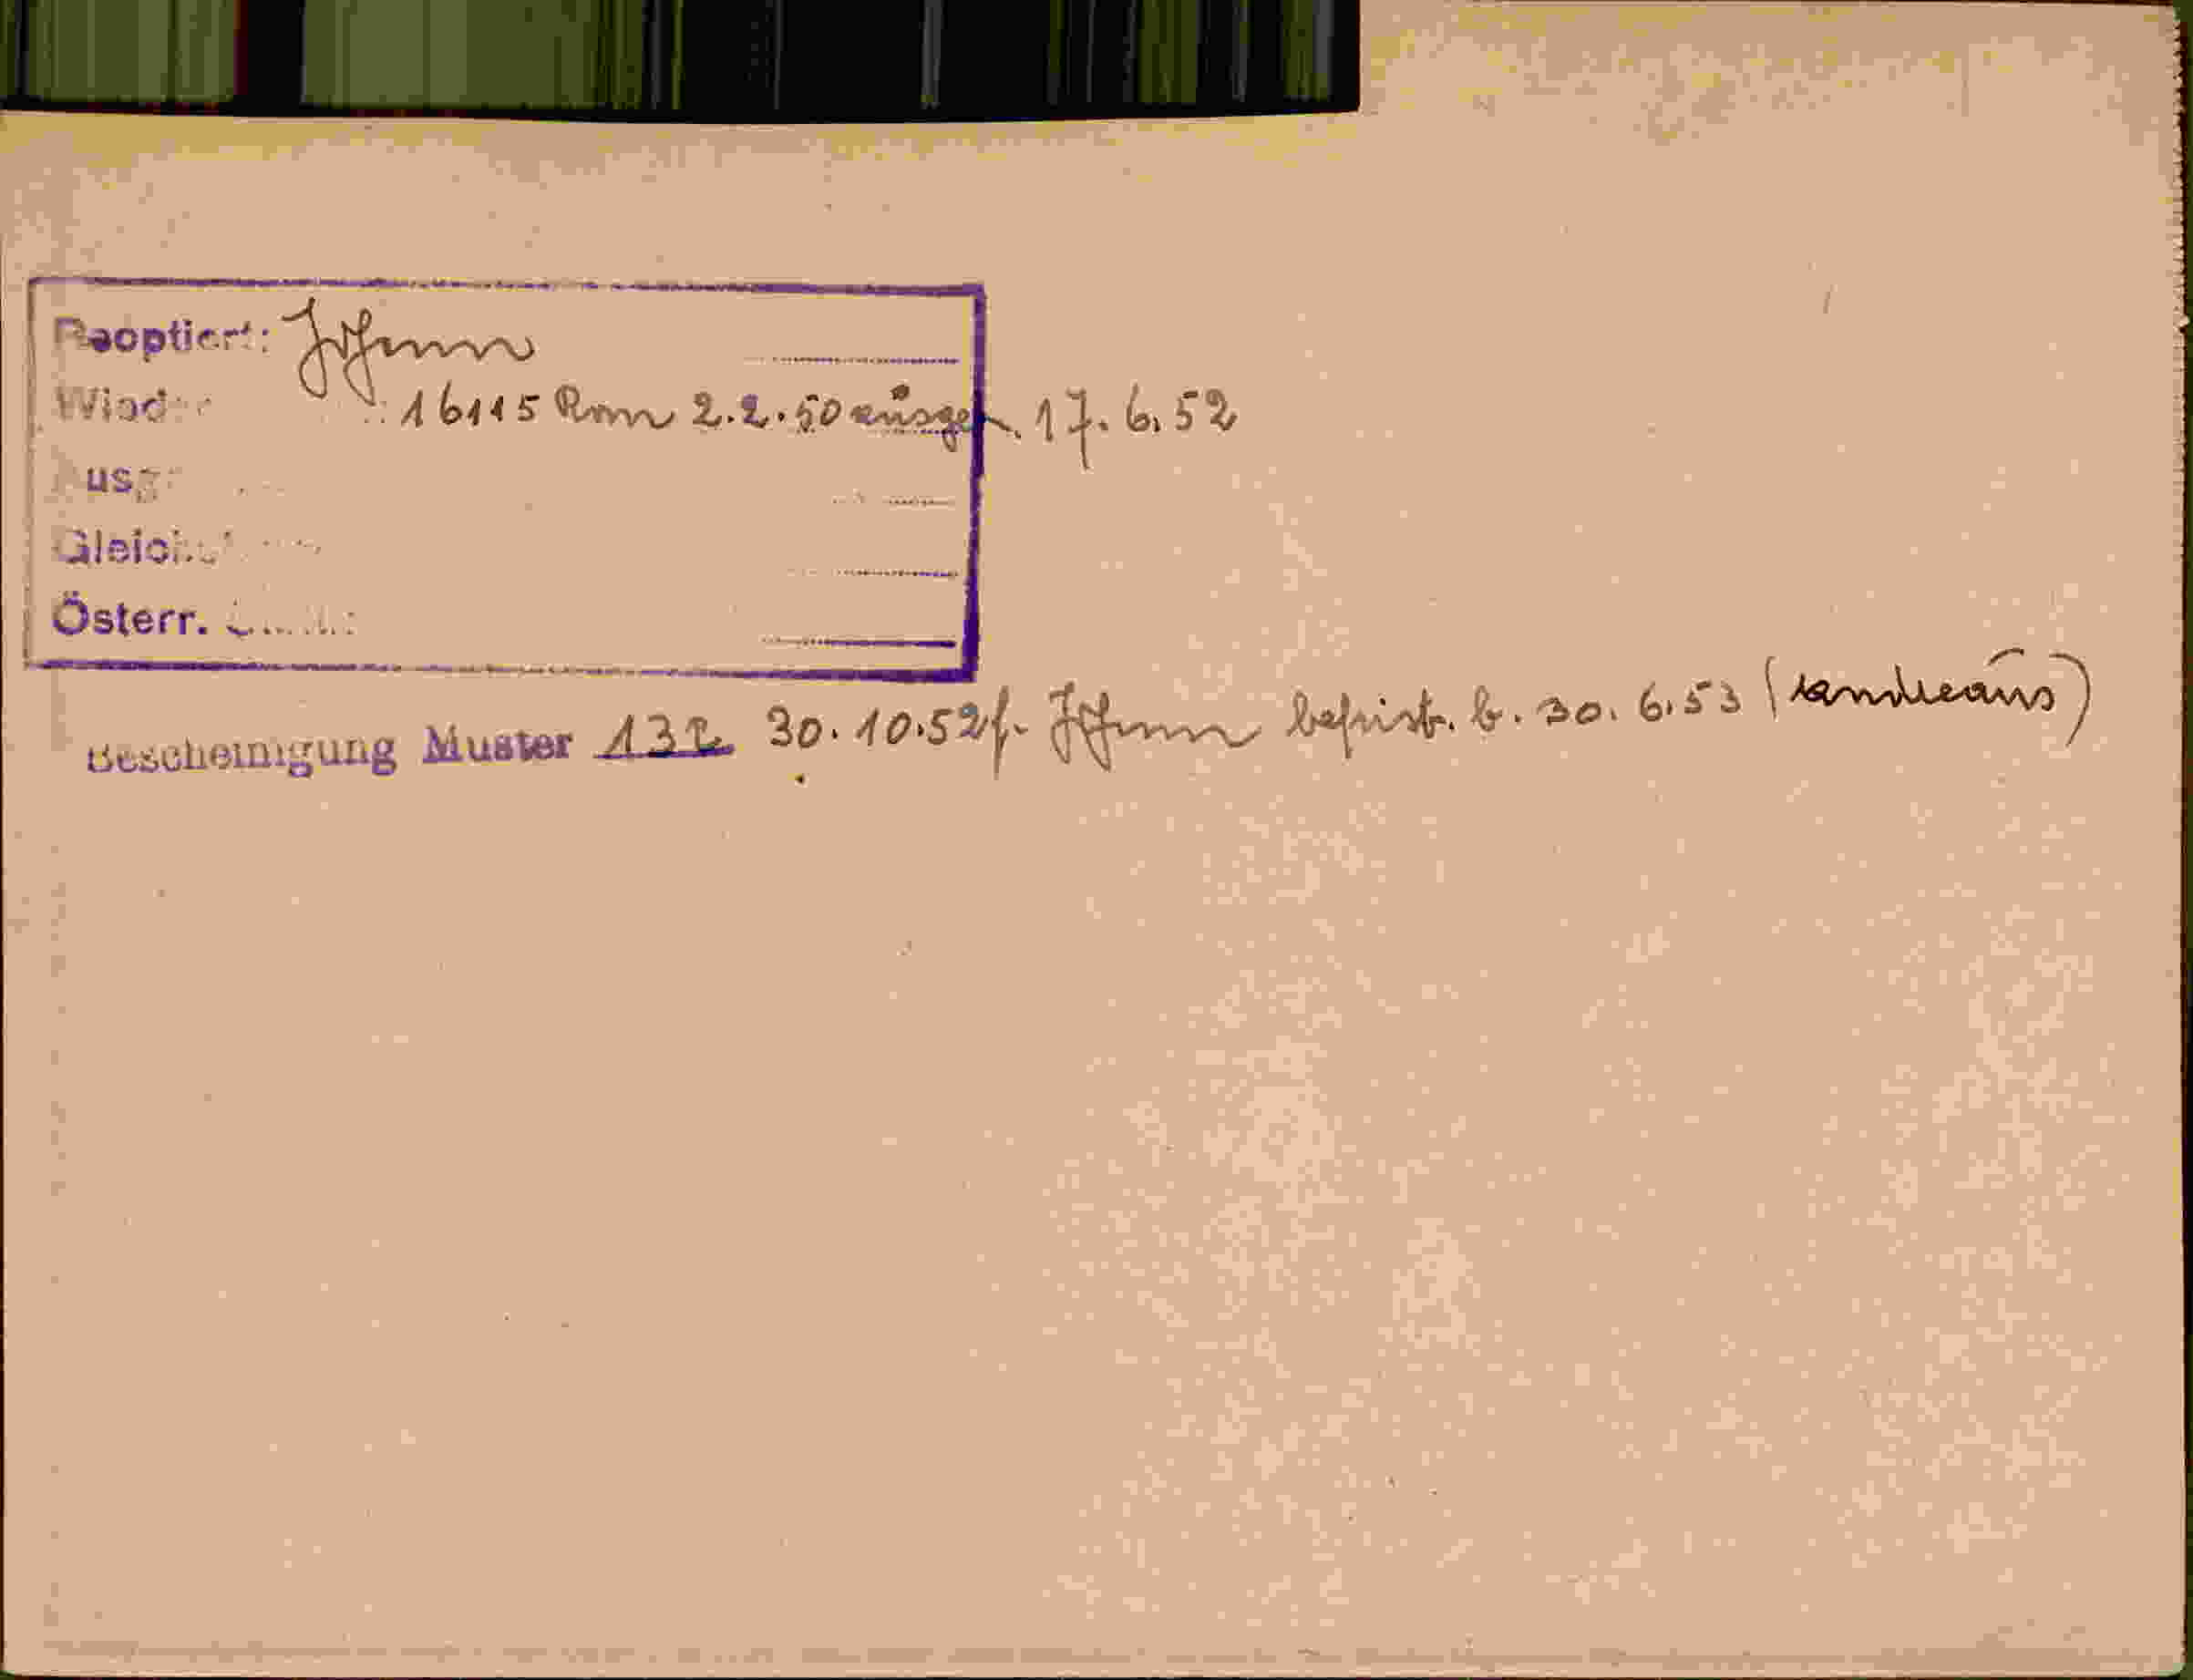 Reoptiert: Johann
Wieder : 16115 Rom 2.2.50 ausgef. 17.6.52
Ausg
Gleich
Österr.
Bescheinigung Muster 132 30.10.52 f. Johann befrist. b. 30.6.53 (